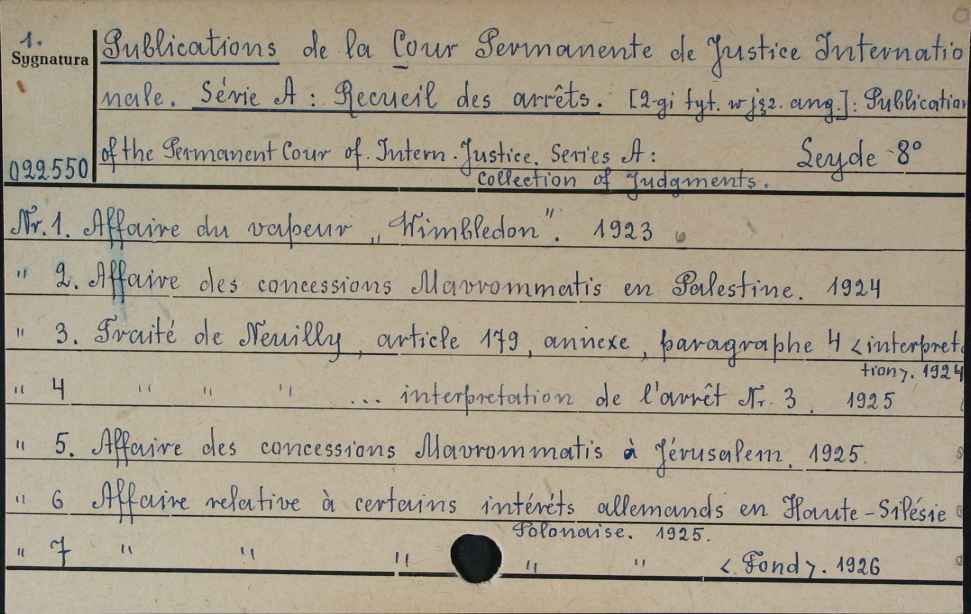 1.
Sygnatura
Publications de la Cour Permanente de Justice Internatio
nale. Série A : Recueil des arrêts. [2-gi tyt. w jęz. ang.]: Publication
of the Permanent Cour of. Intern. Justice. Series A : Leyde 8°
022550
Collection of Judgments.
Nr. 1. Affaire du vapeur „Wimbledon". 1923
" 2. Affaire des concessions Mavrommatis en Palestine. 1924
" 3. Traité de Neuilly, article 179, annexe, paragraphe 4 <interpreta
tion>. 1924
" 4 " " " ... interpretation de l'arrêt Nr. 3. 1925
" 5. Affaire des concessions Mavrommatis à Jérusalem. 1925.
" 6 Affaire relative à certains intérêts allemands en Haute-Silésie
Polonaise. 1925.
" 7 " " " " " <Fond>. 1926